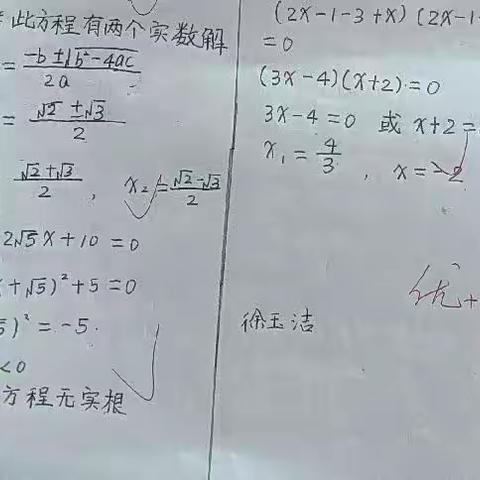 此方程有两个实数解
= \frac{-b±\sqrt{b²-4ac}}{2a}
= \frac{√2 ± √3}{2}
\frac{√2+√3}{2}, x₂ = \frac{√2-√3}{2}
2√5x+10=0
+√5)²+5=0
5)²=-5.
<0
方程无实根
(2x-1-3+x)(2x-1
=0
(3x-4)(x+2)=0
3x-4=0 或 x+2=
x₁=\frac{4}{3}, x=-2
优+
徐玉洁